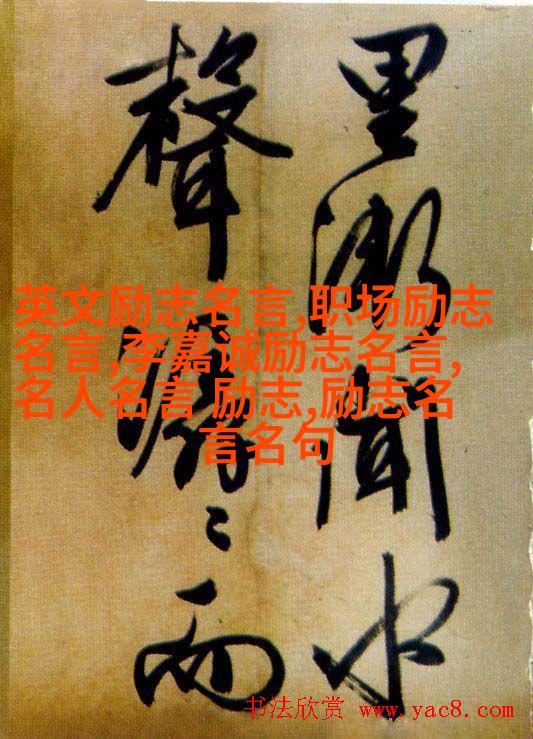 里漸聞水
聲潺〻而
英文励志名言,职场励志
名言,李嘉诚励志名言,
名人名言 励志,励志名
言名句
书法欣赏 www.yac8.com